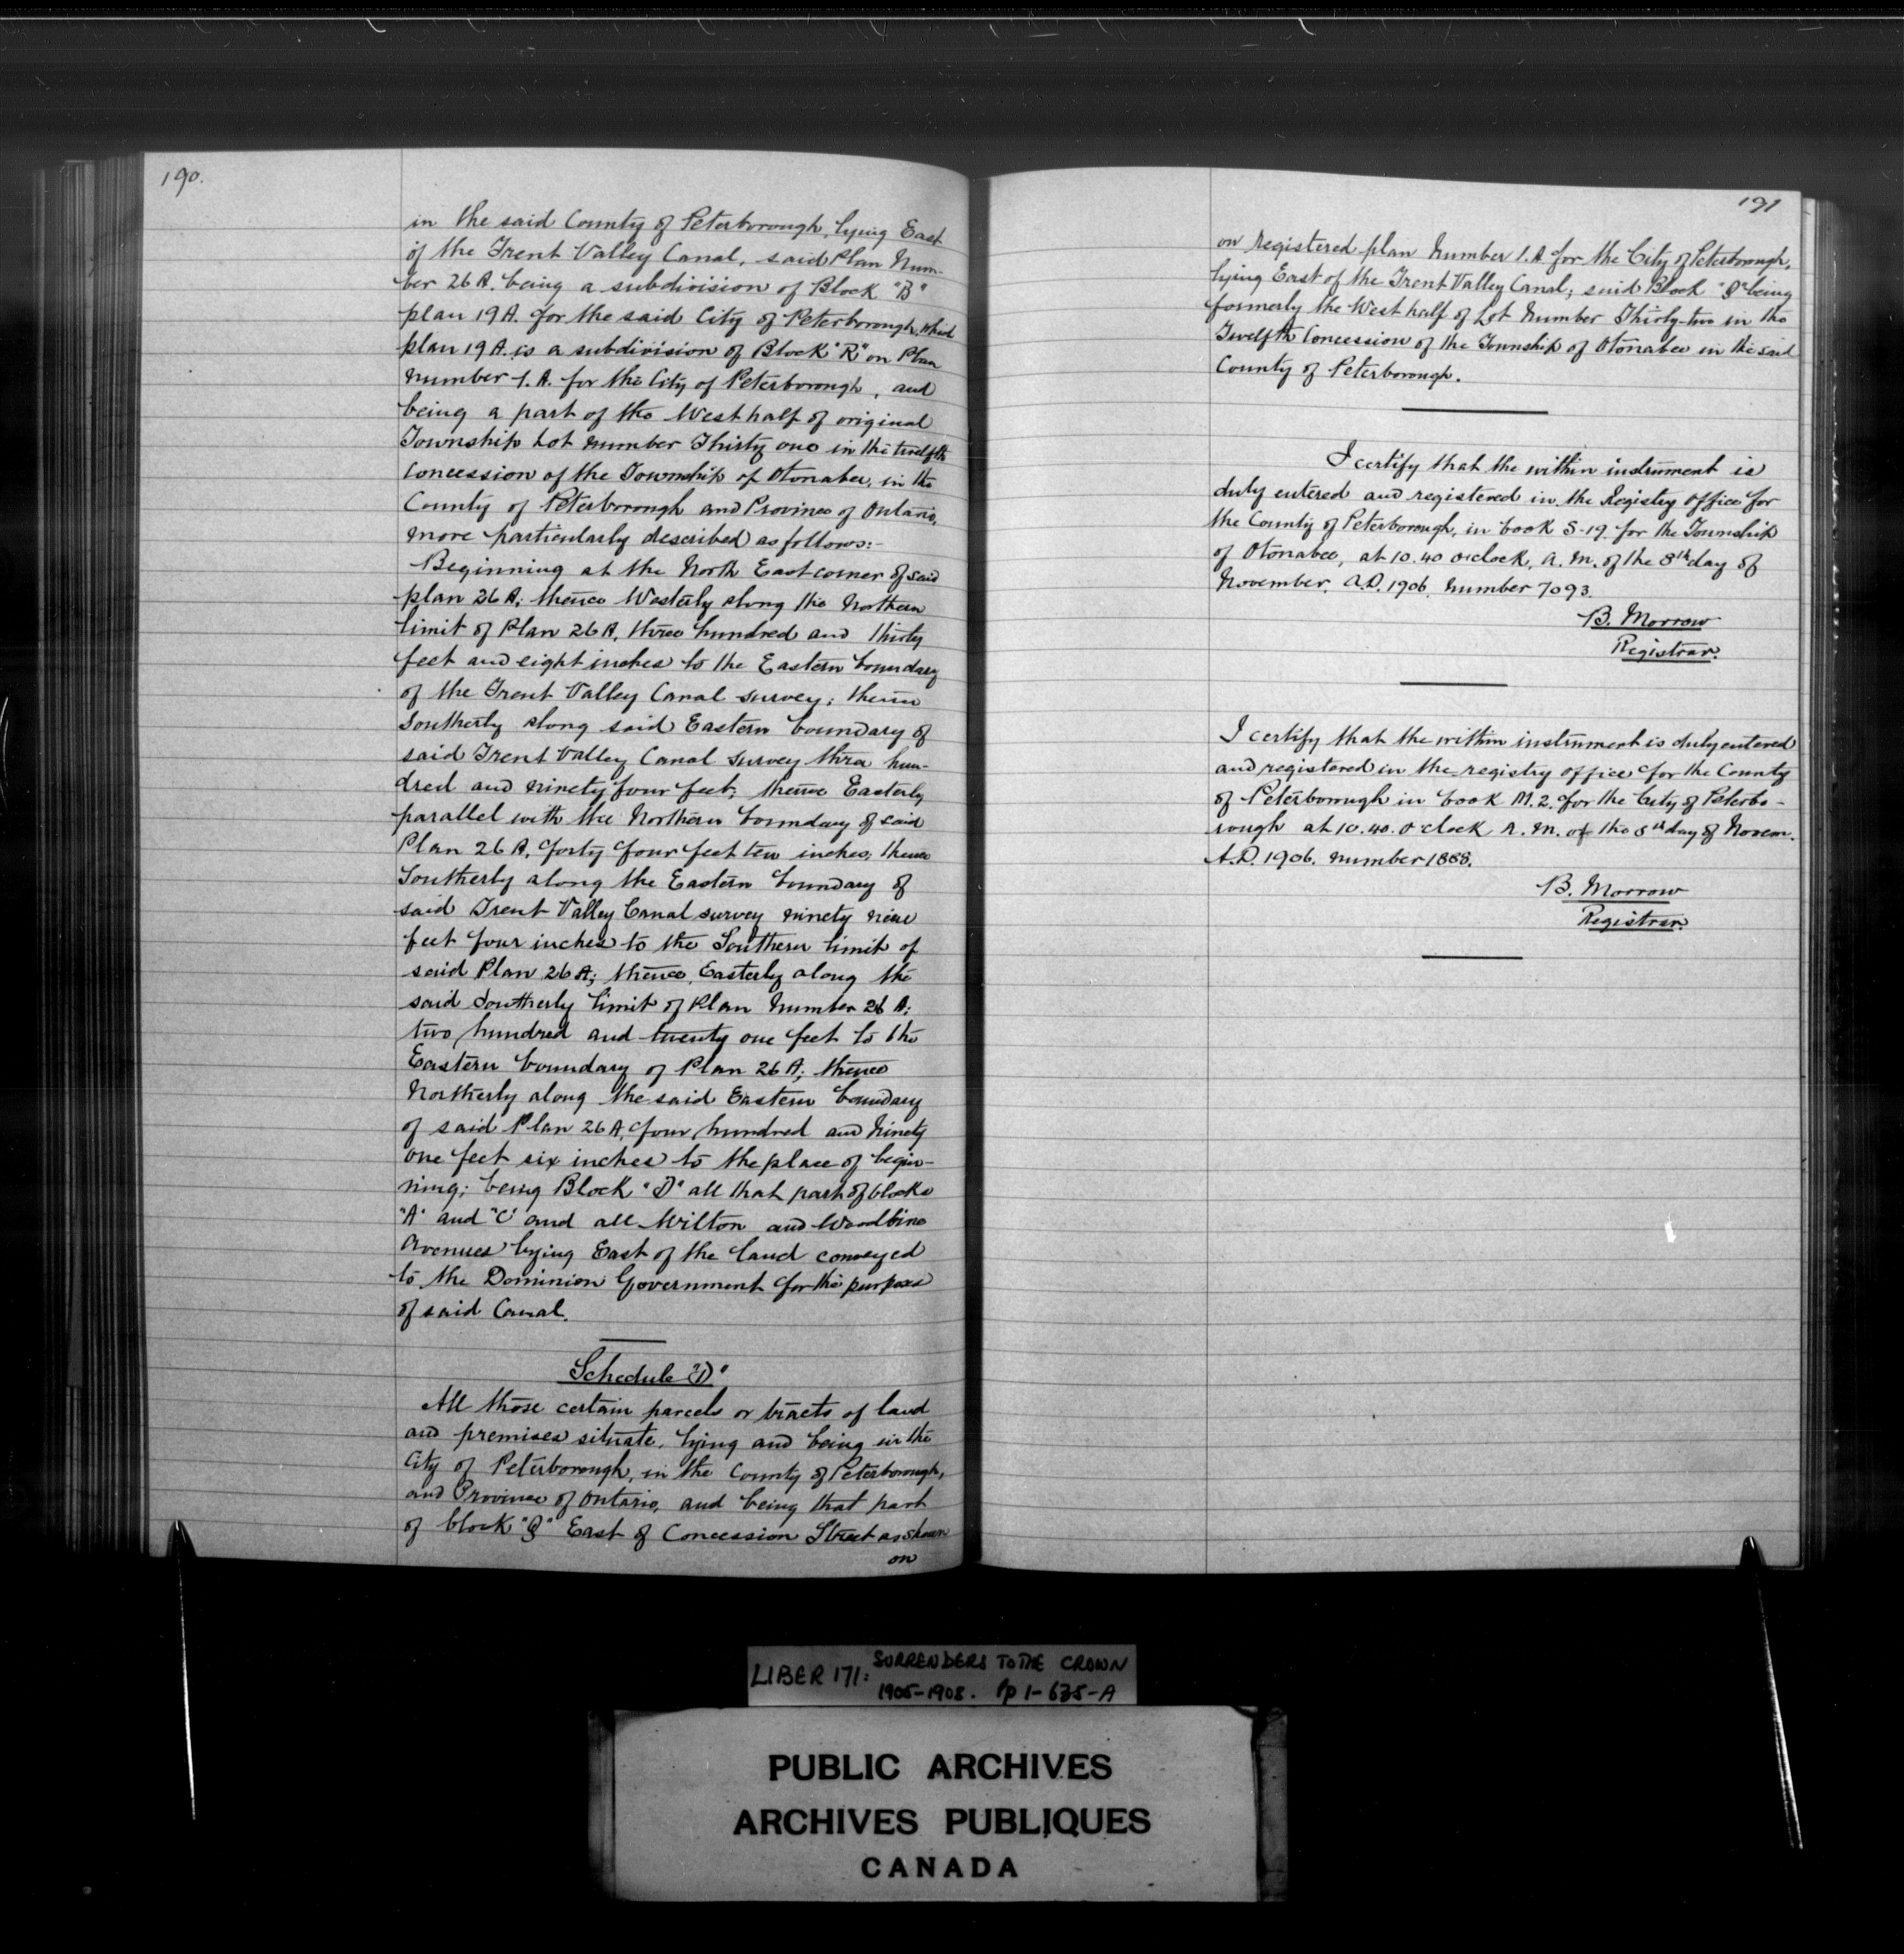 190.
in the said County of Peterborough, lying East
of the Trent Valley Canal, said Plan Num-
ber 26 A. being a subdivision of Block "B"
plan 19 A. for the said City of Peterborough, which
plan 19 A. is a subdivision of Block "R" on Plan
number 1. A. for the City of Peterborough, and
being a part of the West half of original
Township Lot number Thirty one in the twelfth
concession of the Township of Otonabee, in the
County of Peterborough and Province of Ontario,
more particularly described as follows:-
Beginning at the North East corner of said
plan 26 A; thence Westerly along the Northern
limit of Plan 26 A, three hundred and thirty
feet and eight inches to the Eastern boundary
of the Trent Valley Canal survey; thence
Southerly along said Eastern boundary of
said Trent Valley Canal survey three hun-
dred and ninety four feet; thence Easterly
parallel with the Northern boundary of said
Plan 26 A, forty four feet ten inches, thence
Southerly along the Eastern boundary of
said Trent Valley Canal survey ninety nine
feet four inches to the Southern limit of
said Plan 26 A; thence, Easterly along the
said Southerly limit of Plan Number 26 A;
two hundred and twenty one feet to the
Eastern boundary of Plan 26 A; thence
Northerly along the said Eastern boundary
of said Plan 26 A, four hundred and ninety
one feet six inches to the place of begin-
ning; being Block "D" all that part of blocks
"A" and "C" and all Milton and Woodbine
Avenues lying East of the land conveyed
to the Dominion Government for the purposes
of said Canal.
Schedule "D"
All those certain parcels or tracts of land
and premises situate, lying and being in the
City of Peterborough, in the County of Peterborough,
and Province of Ontario, and being that part
of block "Q" East of Concession Street as shown
on
191
on registered plan Number 1. A for the City of Peterborough,
lying East of the Trent Valley Canal; said Block "Q" being
formerly the West half of Lot Number Thirty-two in the
Twelfth Concession of the Township of Otonabee in the said
County of Peterborough.
I certify that the within instrument is
duly entered and registered in the Registry Office for
the County of Peterborough, in book S-19 for the Township
of Otonabee, at 10.40 o'clock, A. M. of the 8th day of
November. A.D. 1906. Number 7093.
B. Morrow
Registrar.
I certify that the within instrument is duly entered
and registered in the registry office for the County
of Peterborough in book M. 2. for the City of Peterbo-
rough at 10.40. o'clock A. M. of the 8th day of Novem.
A.D. 1906. number 1888.
B. Morrow
Registrar.
LIBER 171: SURRENDERS TO THE CROWN
1905-1908. Pp 1-635-A
PUBLIC ARCHIVES
ARCHIVES PUBLIQUES
CANADA